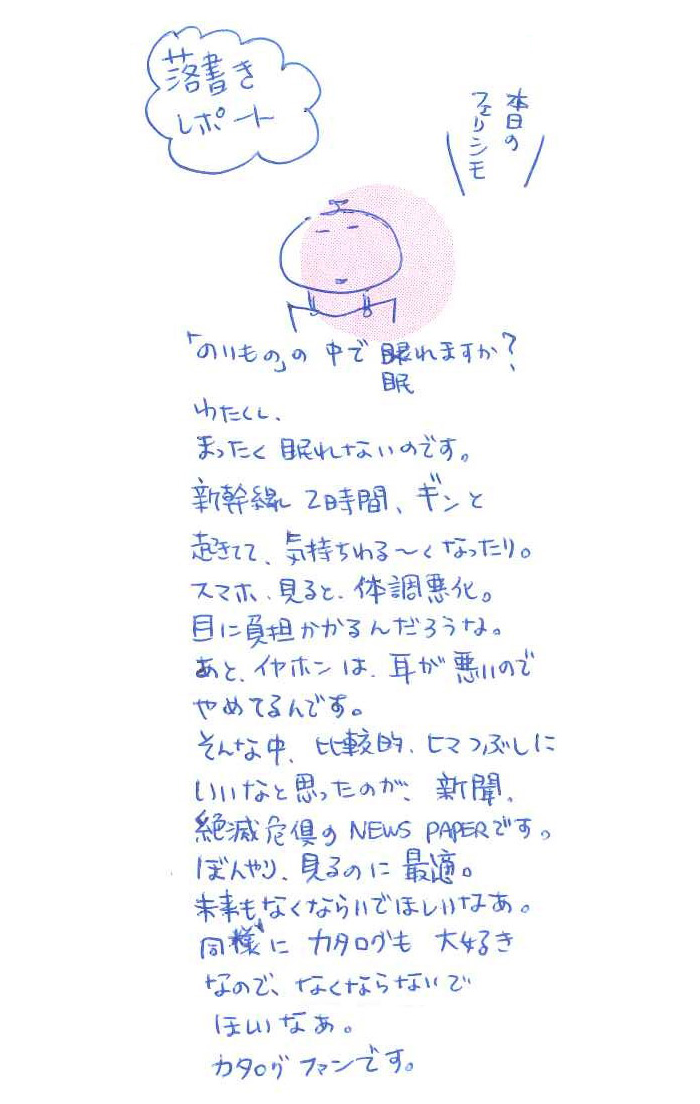 落書き
レポート
本日の
フェリシモ
「のりもの」の中で眠れますか?
眠
わたくし、
まったく眠れないのです。
新幹線2時間、ギンと
起きてて、気持ちわる〜くなったり。
スマホ、見ると、体調悪化。
目に負担かかるんだろうな。
あと、イヤホンは、耳が悪いので
やめてるんです。
そんな中、比較的、ヒマつぶしに
いいなと思ったのが、新聞、
絶滅危惧のNEWS PAPERです。
ぼんやり、見るのに最適。
未来もなくならいでほしいなあ。
同様にカタログも大好き
なので、なくならないで
ほしいなあ。
カタログファンです。